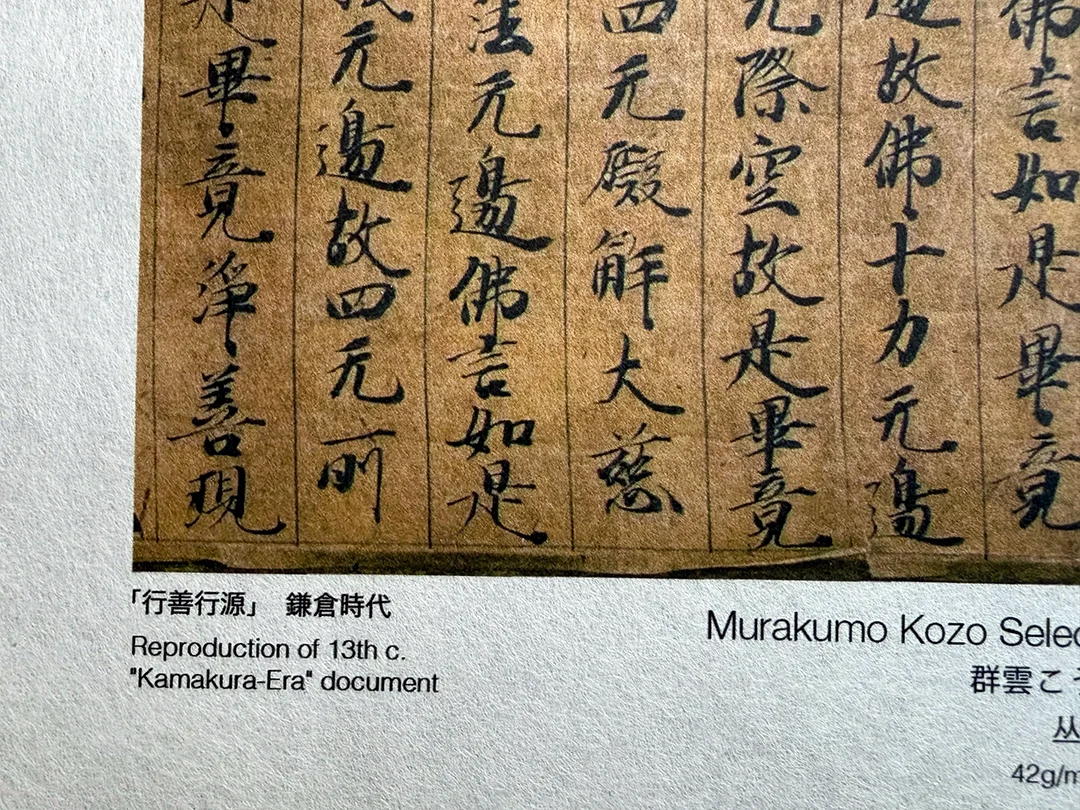 佛言如是畢竟
邊故佛十力无邊
无際空故是畢竟
四无礙解大慈
法无邊佛言如是
无邊故四无所
畢竟淨善現
「行善行源」 鎌倉時代
Reproduction of 13th c.
"Kamakura-Era" document
Murakumo Kozo Selec
群雲こ
丛
42g/m